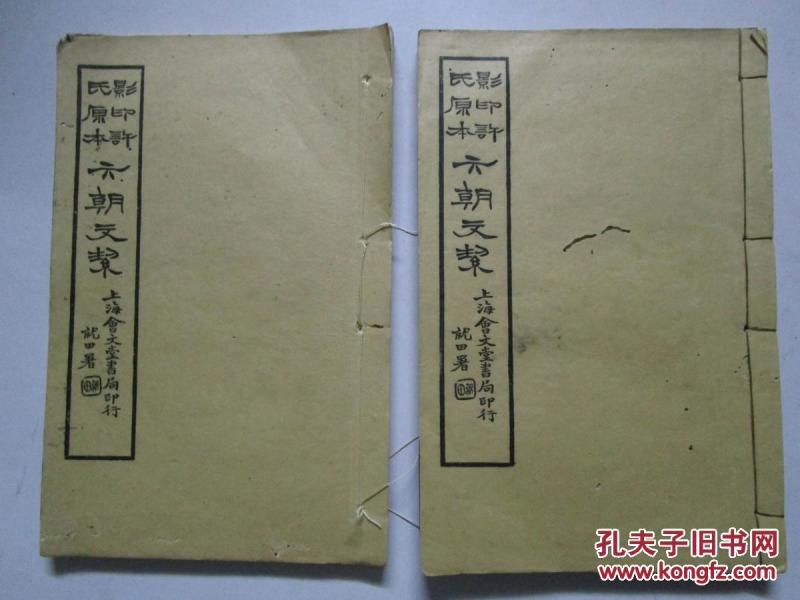 影印許
氏原本
六朝文絜
上海會文堂書局印行
影印許
氏原本
六朝文絜
上海會文堂書局印行
孔夫子旧书网
www.kongfz.com